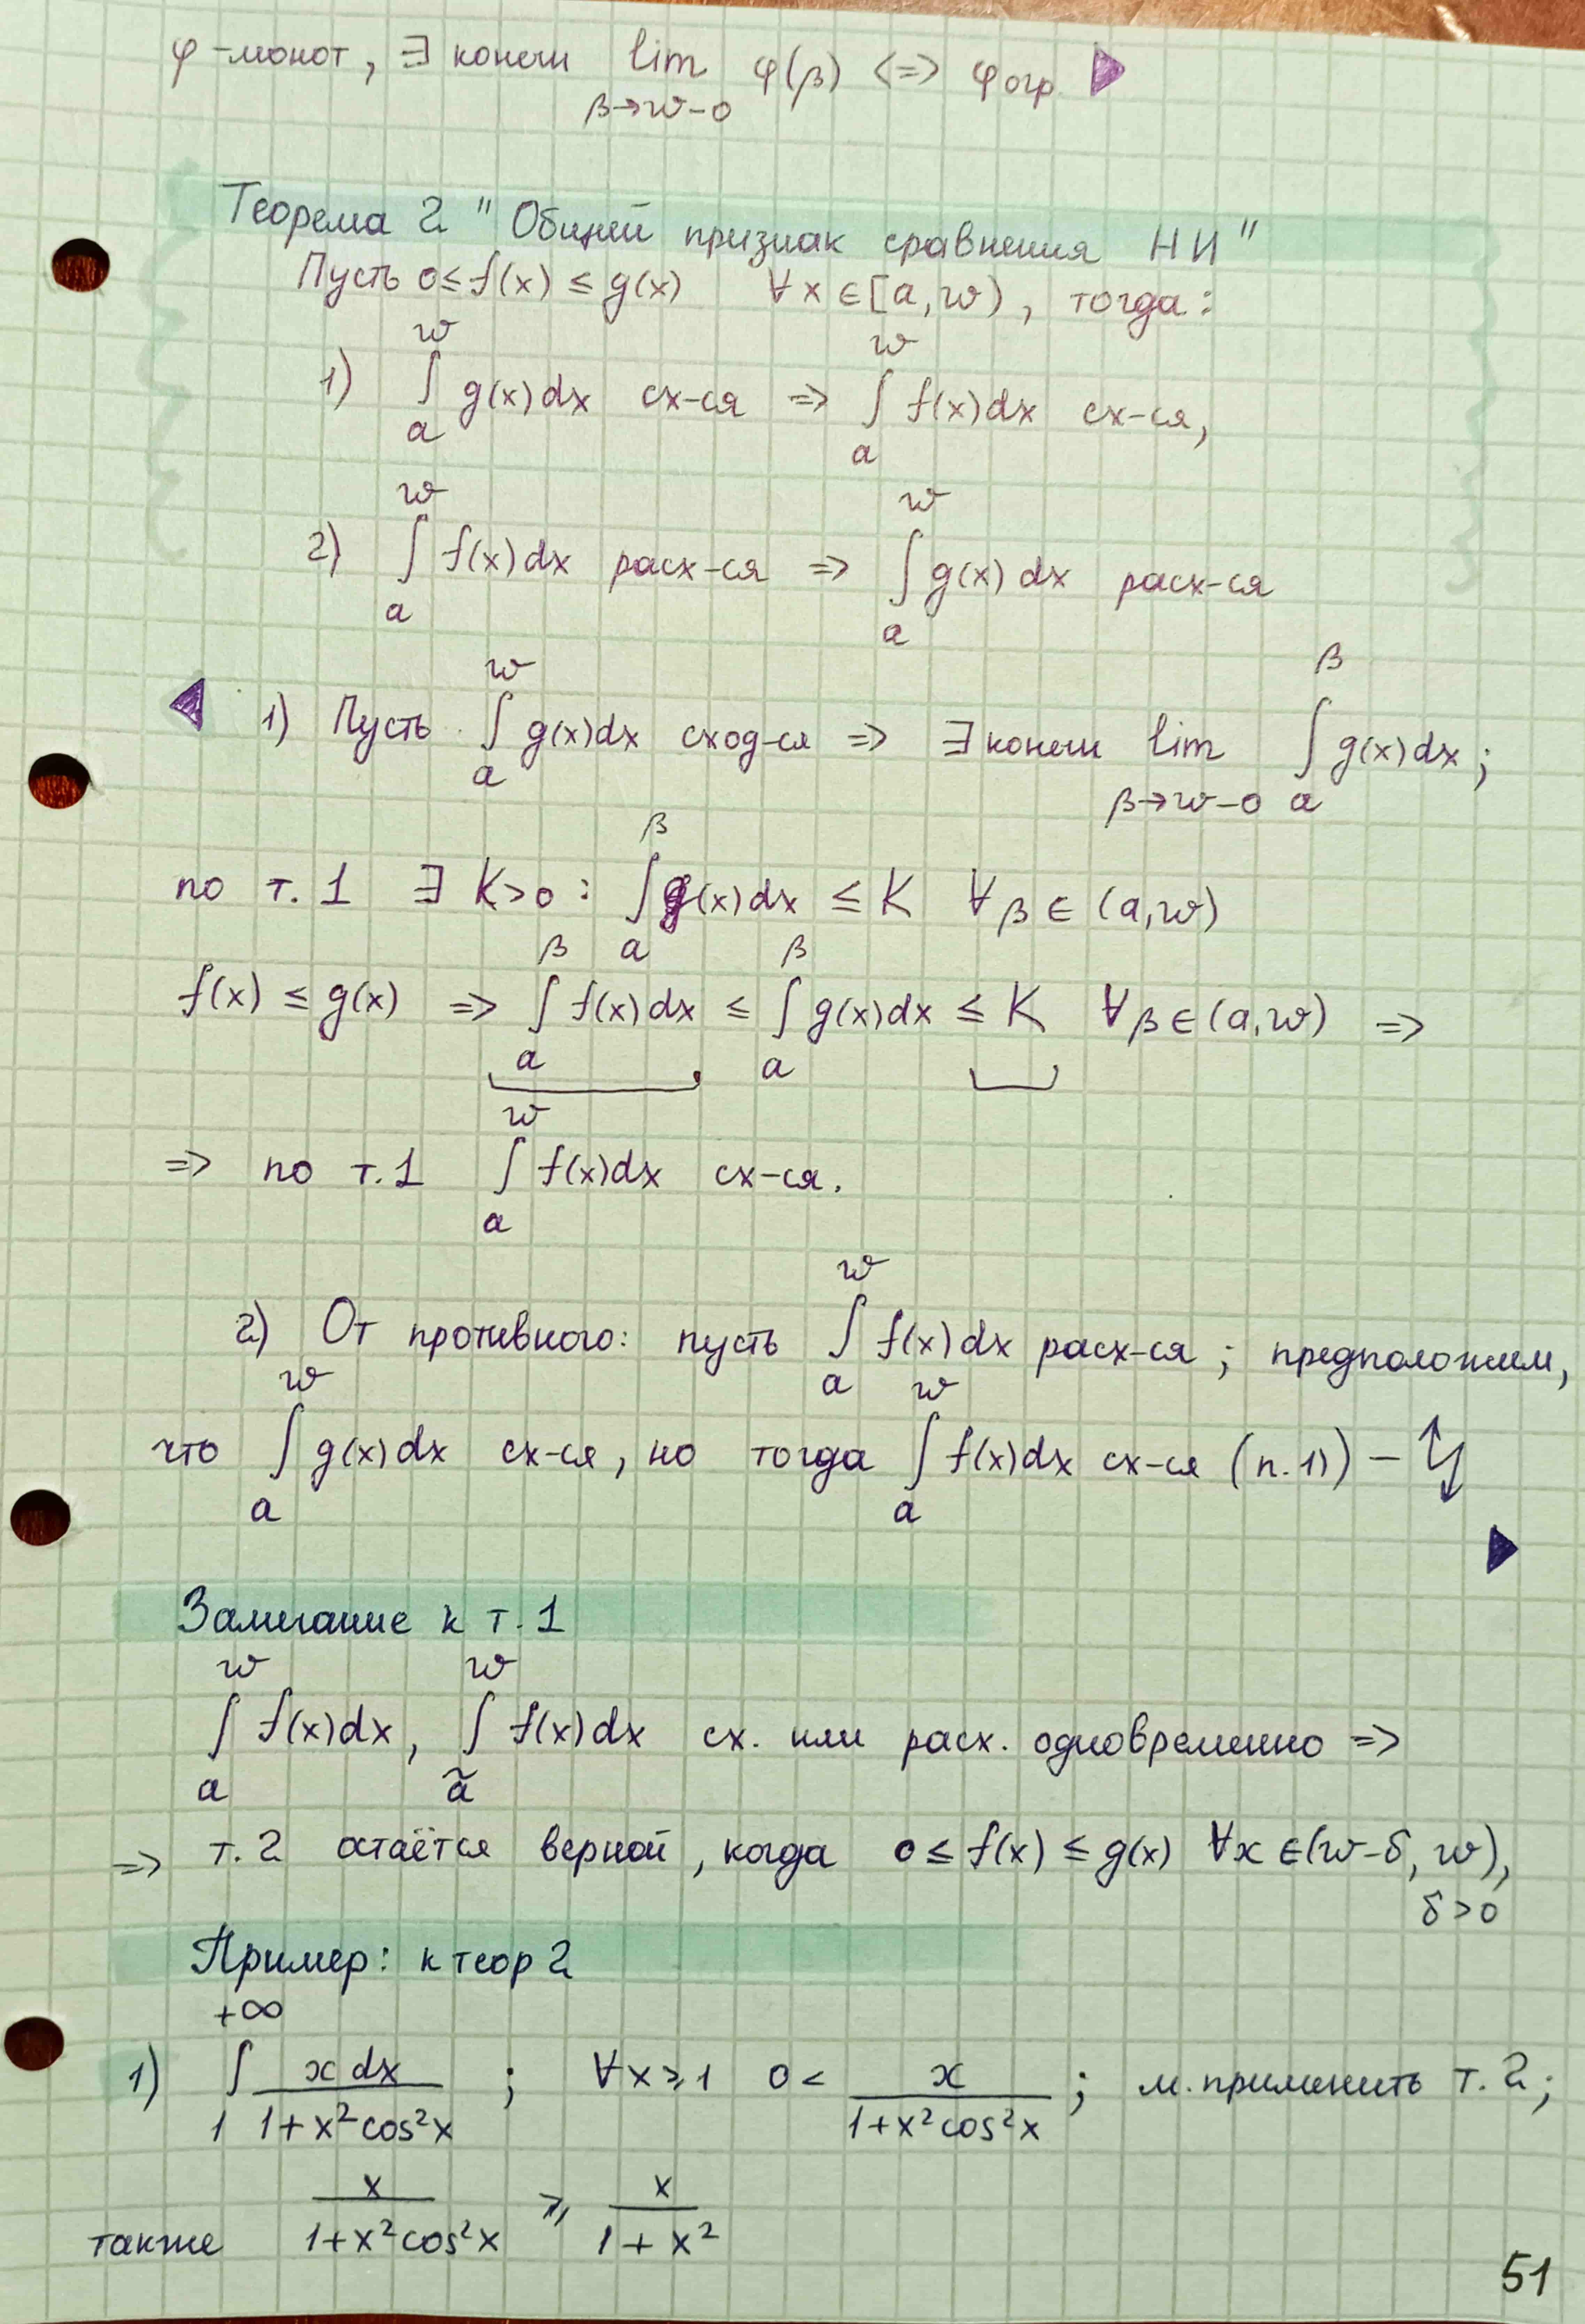 φ-монот, ∃ конечн lim φ(β) <=> φ огр.
β→w-0
Теорема 2 "Общий признак сравнения НИ"
Пусть 0≤f(x) ≤ g(x) ∀x∈[a,w), тогда:
1) ∫_a^w g(x)dx сх-ся => ∫_a^w f(x)dx сх-ся,
2) ∫_a^w f(x)dx расх-ся => ∫_a^w g(x)dx расх-ся
1) Пусть ∫_a^w g(x)dx сход-ся => ∃ конечн lim_{β→w-0} ∫_a^β g(x)dx;
по т.1 ∃ K>0: ∫_a^β g(x)dx ≤ K ∀β∈(a,w)
f(x) ≤ g(x) => ∫_a^β f(x)dx ≤ ∫_a^β g(x)dx ≤ K ∀β∈(a,w) =>
=> по т.1 ∫_a^w f(x)dx сх-ся.
2) От противного: пусть ∫_a^w f(x)dx расх-ся; предположим,
что ∫_a^w g(x)dx сх-ся, но тогда ∫_a^w f(x)dx сх-ся (п.1)) –
Замечание к т.1
∫_a^w f(x)dx, ∫_ã^w f(x)dx сх. или расх. одновременно =>
=> т.2 остаётся верной, когда 0≤f(x)≤g(x) ∀x∈(w-δ, w),
δ>0
Пример: к теор 2
1) ∫_1^{+∞} x dx / (1+x²cos²x) ; ∀x⩾1 0< x / (1+x²cos²x) ; м. применить т.2;
также x / (1+x²cos²x) ⩾ x / (1+x²)
51